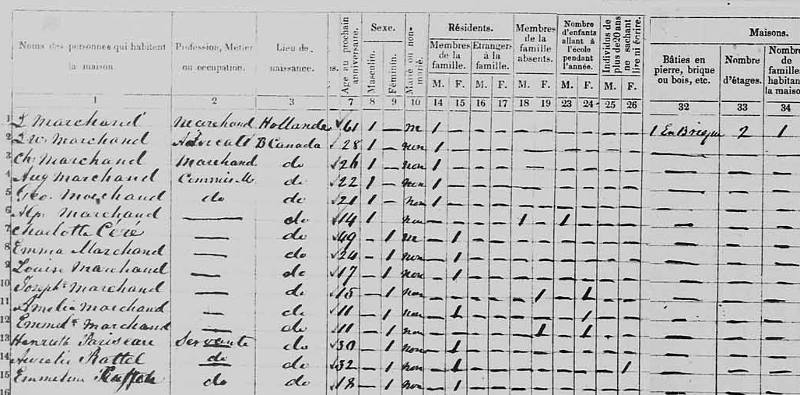 Noms des personnes qui habitent la maison
Profession, Metier ou occupation.
Lieu de naissance.
Age au prochain anniversaire.
Sexe.
Masculin.
Féminin.
Marié ou non-marié.
Résidents.
Membres de la famille.
Etrangers à la famille.
M. F. M. F.
Membres de la famille absents.
M. F.
Nombre d'enfants allant à l'école pendant l'année.
M. F.
Individus de plus de 20 ans ne sachant lire ni écrire.
M. F.
Maisons.
Bâties en pierre, brique ou bois, etc.
Nombre d'étages.
Nombre de familles habitant la maison
1 2 3 7 8 9 10 14 15 16 17 18 19 23 24 25 26 32 33 34
1 Marchand Marchand Hollande 61 1 — m 1 — — — — — — — — — 1 En Brique 2 1
2 Marchand Avocat B Canada 28 1 — non 1
3 Ch Marchand Marchand do 26 1 — non 1
4 Aug Marchand Commis M. do 22 1 — non 1
5 Geo. Marchand do do 21 1 — non 1
6 Alp. Marchand — do 14 1 non 1 1
7 Charlotte Cere — do 49 — 1 m — 1
8 Emma Marchand — do 24 — 1 non — 1
9 Louise Marchand — do 17 — 1 non — 1
10 Josephe Marchand — do 15 — 1 non 1 1
11 Amelia Marchand — do 11 — 1 non 1 1
12 Emmde Marchand — do 11 — 1 non 1 1
13 Henriette Pariseau Servante do 30 — 1 non 1
14 Aurelie Rattel do do 32 — 1 non 1 1
15 Emmeline do do 18 — 1 non 1
16